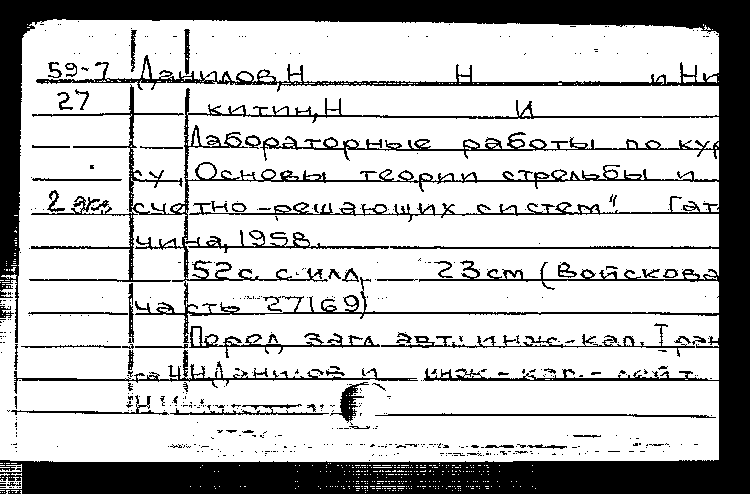 59-7 Данилов, Н Н и Ни
27 китин, Н И
Лабораторные работы по кур
су „Основы теории стрельбы и
2 экз счетно-решающих систем". Гат
чина, 1958.
52 с. с илл, 23 см (Войскова
часть 27169)
Перед загл авт.: инж-кап. I ран
га Н Н Данилов и инж-кап.-лейт.
Н И